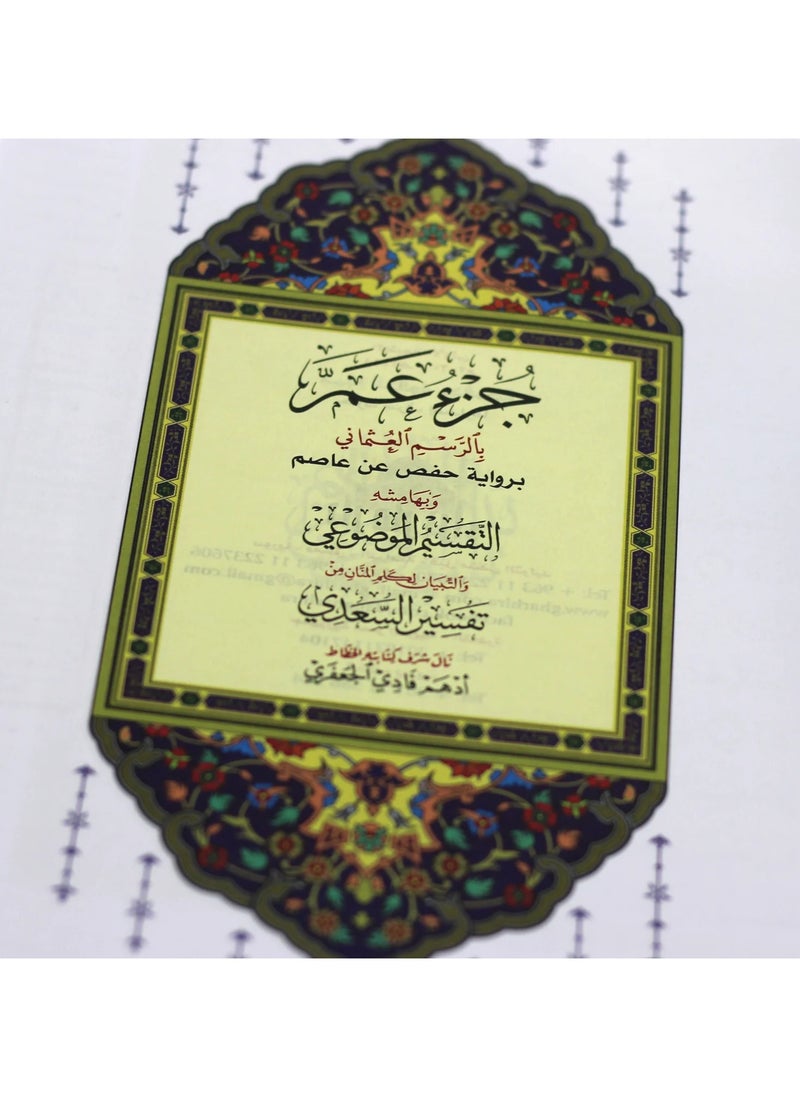 جُزْءُ عَمَّ
بِالرَّسْمِ العُثْمَانِي
برواية حفص عن عاصم
وَبِهَامِشِهِ
التَّقْسِيمُ المَوْضُوعِيُّ
وَالتِّبْيَانُ لِكَلِمِ المَنَّانِ مِنْ
تَفْسِيْرِ السَّعْدِي
نَالَ شَرَفَ كِتَابَتِهِ الخَطَّاطُ
أَدْهَمْ فَادِي الجَعْفَرِي